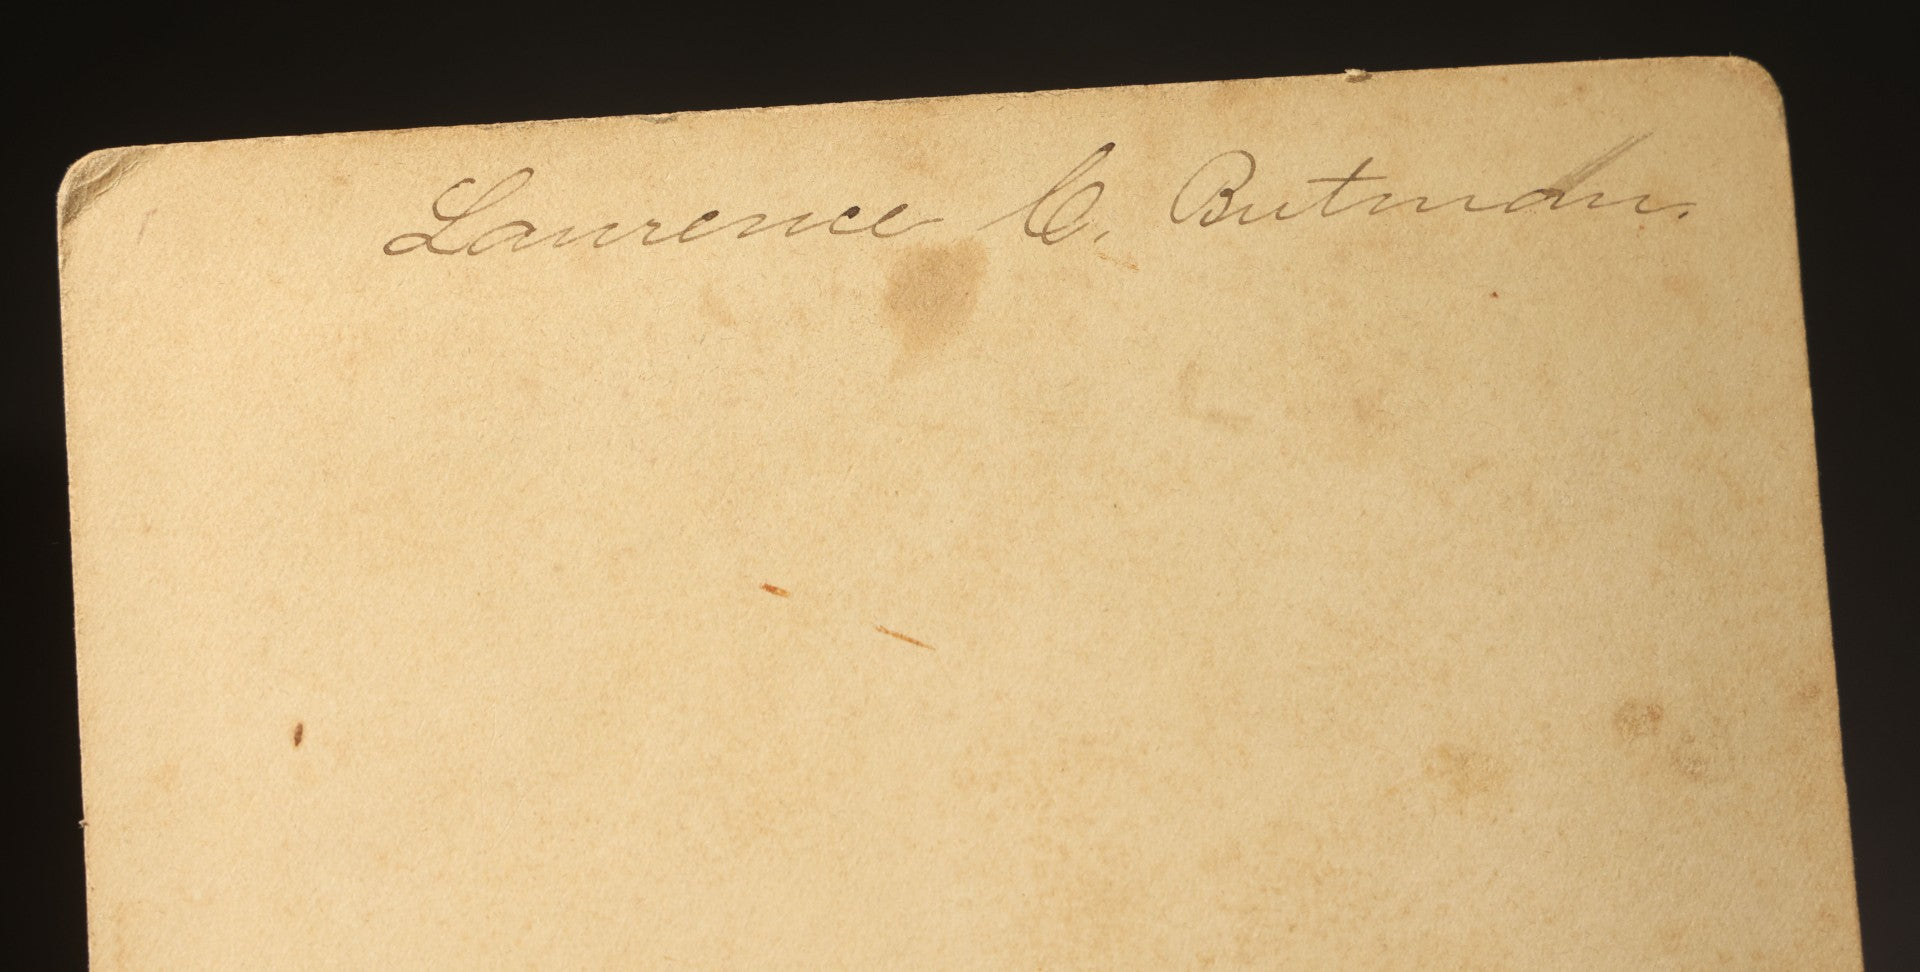 Laurence C. Butman.